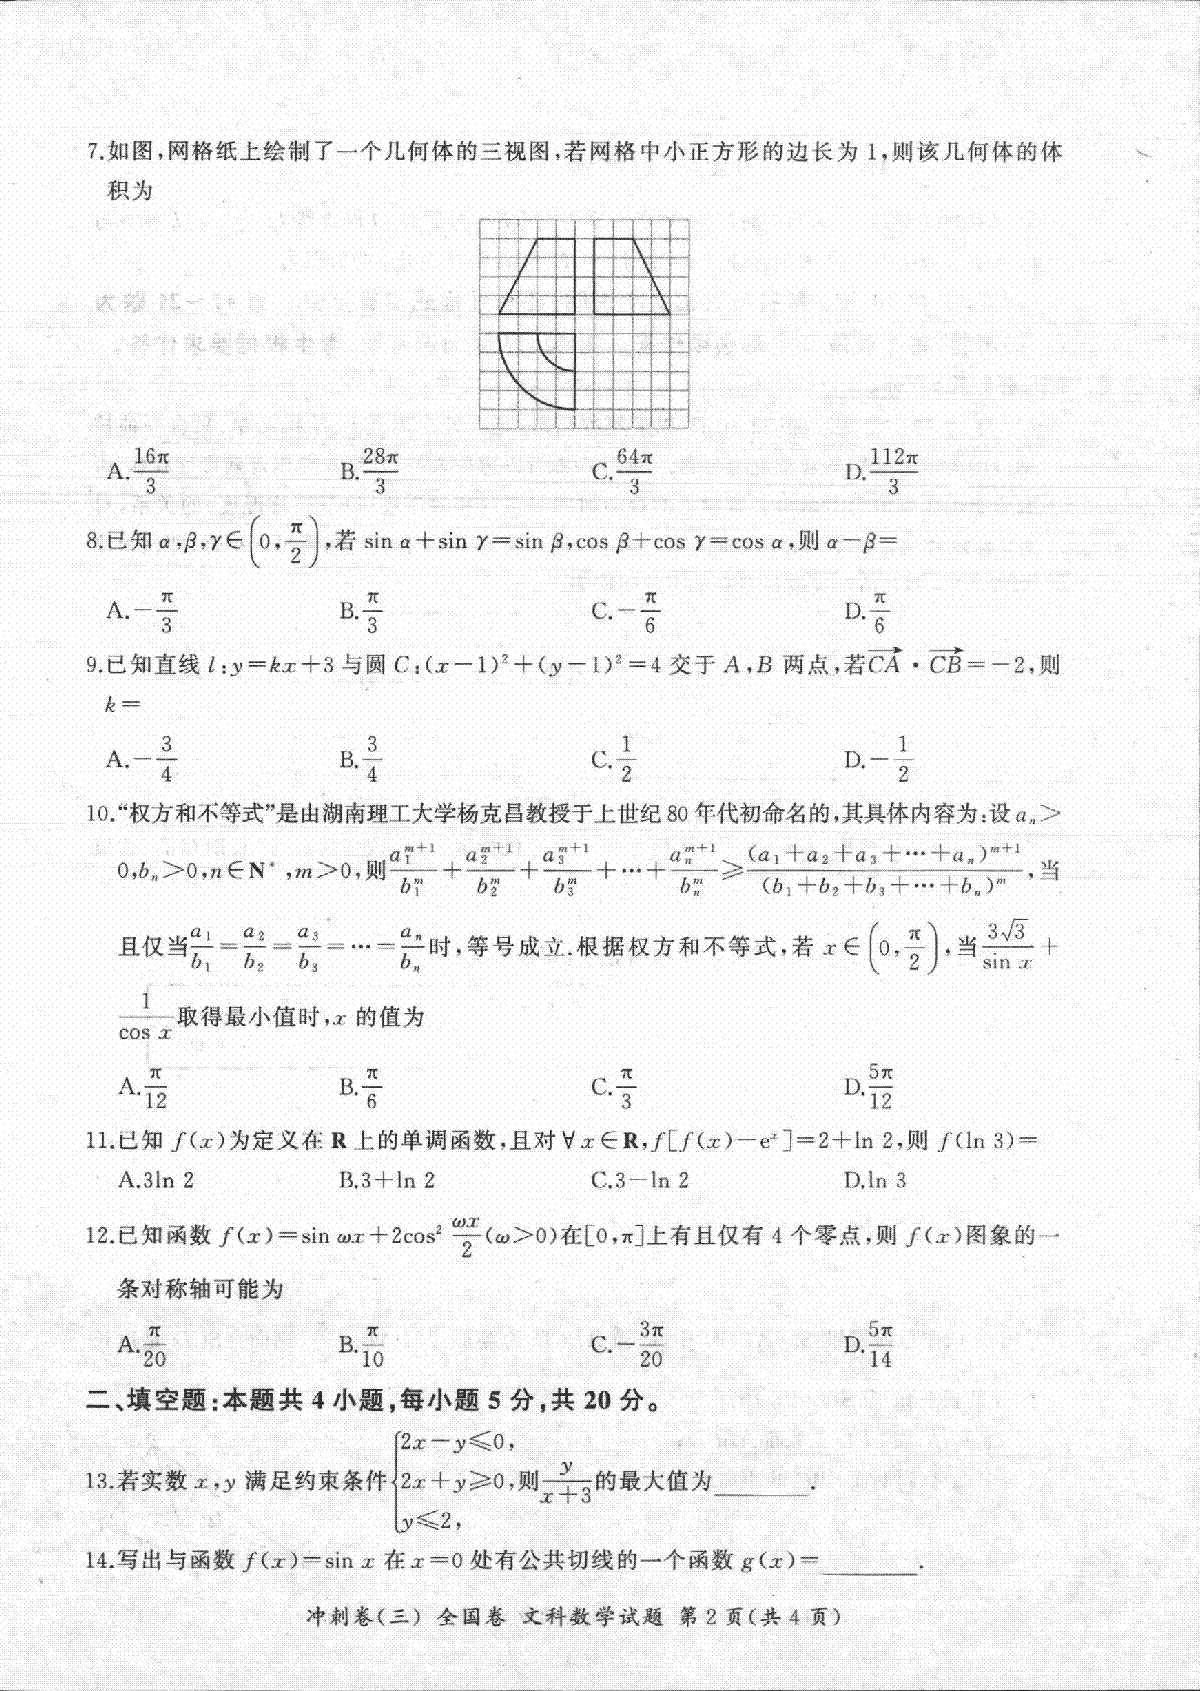 7.如图,网格纸上绘制了一个几何体的三视图,若网格中小正方形的边长为1,则该几何体的体
积为
A.16π/3 B.28π/3 C.64π/3 D.112π/3
8.已知α,β,γ∈(0,π/2),若 sin α+sin γ=sin β,cos β+cos γ=cos α,则α-β=
A.-π/3 B.π/3 C.-π/6 D.π/6
9.已知直线l:y=kx+3与圆C:(x-1)²+(y-1)²=4交于A,B两点,若CA→·CB→=-2,则
k=
A.-3/4 B.3/4 C.1/2 D.-1/2
10.“权方和不等式”是由湖南理工大学杨克昌教授于上世纪80年代初命名的,其具体内容为:设aₙ>
0,bₙ>0,n∈N*,m>0,则a₁^(m+1)/b₁^m+a₂^(m+1)/b₂^m+a₃^(m+1)/b₃^m+···+aₙ^(m+1)/bₙ^m≥(a₁+a₂+a₃+···+aₙ)^(m+1)/(b₁+b₂+b₃+···+bₙ)^m,当
且仅当a₁/b₁=a₂/b₂=a₃/b₃=···=aₙ/bₙ时,等号成立.根据权方和不等式,若x∈(0,π/2),当3√3/sin x+
1/cos x取得最小值时,x的值为
A.π/12 B.π/6 C.π/3 D.5π/12
11.已知f(x)为定义在R上的单调函数,且对∀x∈R,f[f(x)-eˣ]=2+ln 2,则f(ln 3)=
A.3ln 2 B.3+ln 2 C.3-ln 2 D.ln 3
12.已知函数f(x)=sin ωx+2cos² ωx/2(ω>0)在[0,π]上有且仅有4个零点,则f(x)图象的一
条对称轴可能为
A.π/20 B.π/10 C.-3π/20 D.5π/14
二、填空题:本题共4小题,每小题5分,共20分。
13.若实数x,y满足约束条件{2x-y≤0,2x+y≥0,y≤2,则y/(x+3)的最大值为________.
14.写出与函数f(x)=sin x在x=0处有公共切线的一个函数g(x)=________.
冲刺卷(三) 全国卷 文科数学试题 第2页(共4页)